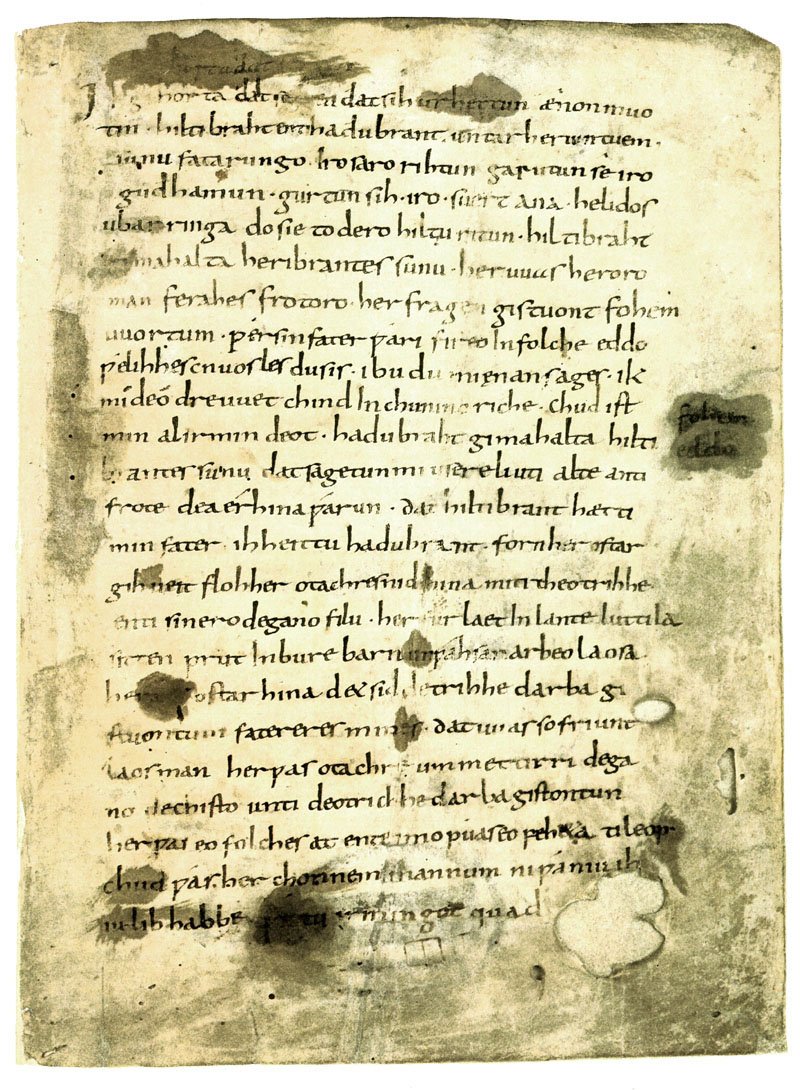 horta dat seggen dat sih urhettun ænon muo
tin · hiltibraht enti hadubrant · untar heriun tuem ·
sunu fatarungo · iro saro rihtun garutun sê iro
gudhamun · gurtun sih · iro · suert ana · helidos
ubar ringa do sie to dero hiltu ritun · hiltibraht
gimahalta heribrantes sunu · her uuas heroro
man ferahes frotoro · her fragen gistuont fohem
uuortum · ƿer sin fater ƿari fireo In folche eddo
ƿelihhes cnuosles du sis · ibu du mi enan sages · ik
mi deo dre uuet chind In chunincriche · chud ist
min al irmin deot · hadubraht gimahalta hilti
brantes sunu dat sagetun mi usere liuti alte anti
frote dea érhina ƿárun · dat hiltibrant hætti
min fater · ih heittu hadubrant · forn her ostar
gihueit floh her otachres nid hina miti theotrihhe ·
enti sinero degano filu · her furlaet In lante luttila
sitten prut In bure barn unƿahsan arbeo laosa ·
ostar hina det sid detrihhe darba gi
stuontum fatereres mines · dat uuas so friunt
laos man her ƿas otachre ummettirri dega
no dechisto unti deotrichhe darba gistontun
her ƿas eo folches at ente imo ƿuas eo feheta ti leop
chud ƿás · her chonnem mannum ni ƿániu ih
iu lib habbe irmingot quad
fohem
eddo